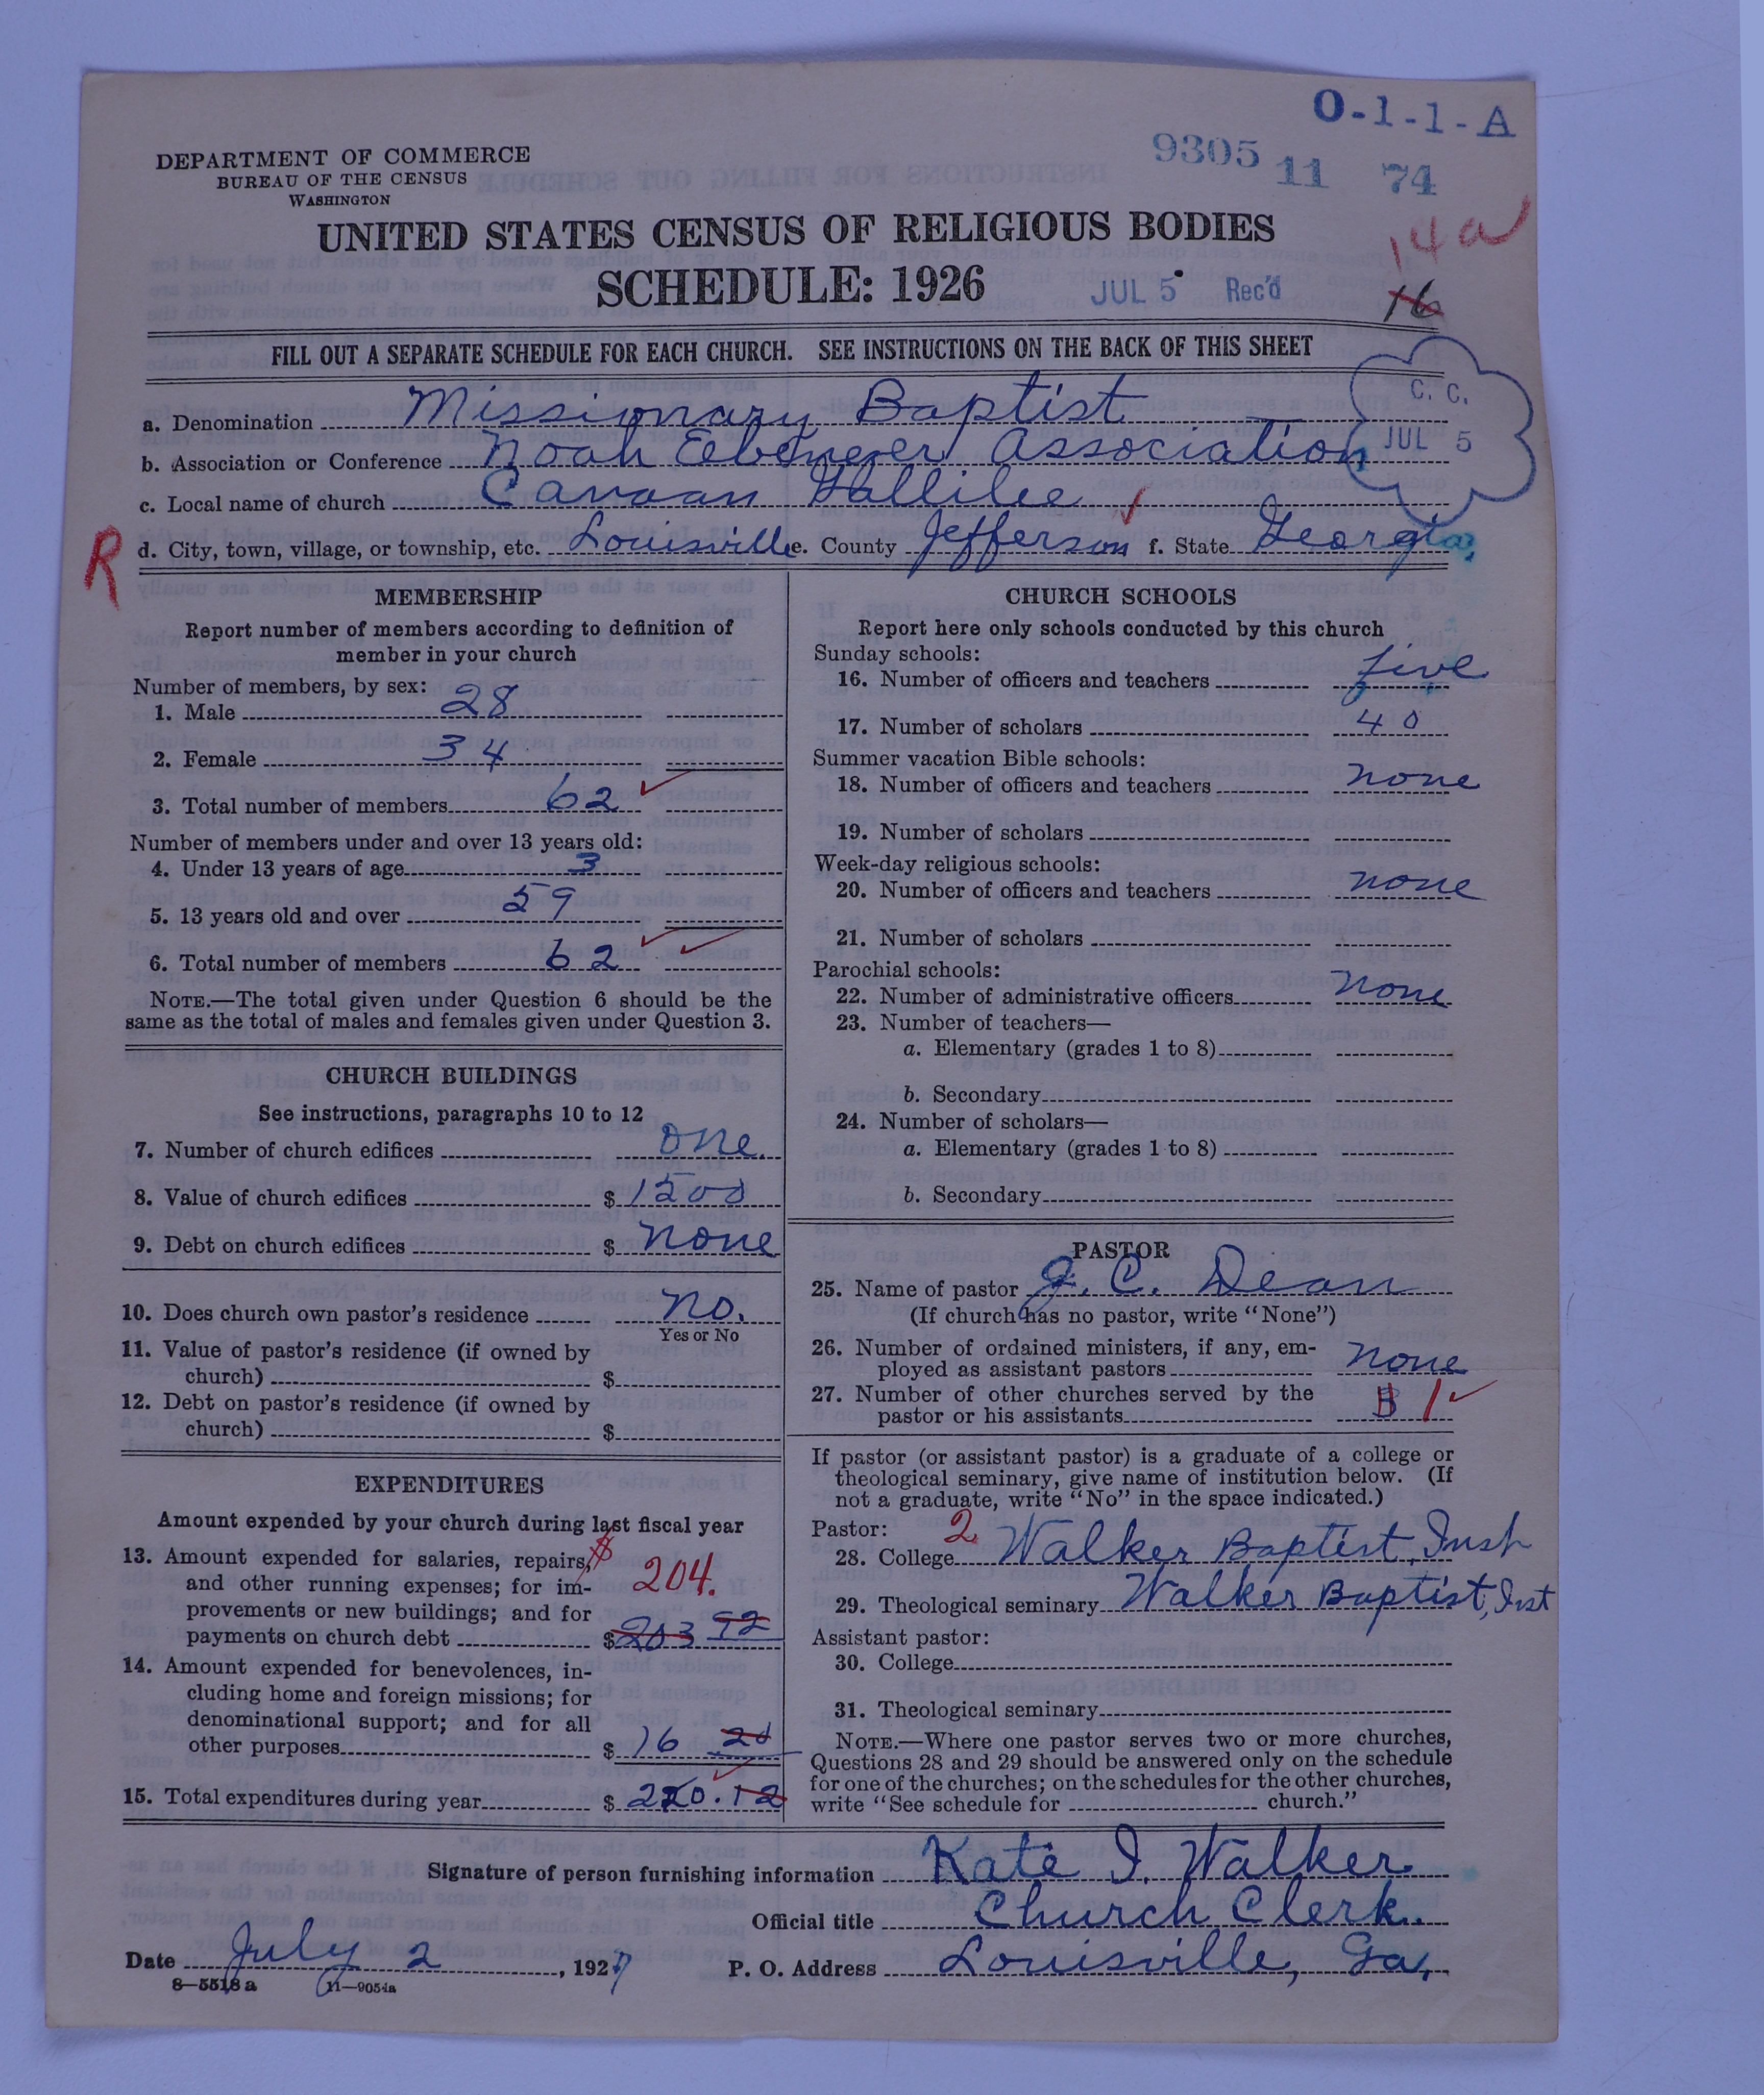 O-1-1-A
9305 11 74
DEPARTMENT OF COMMERCE
BUREAU OF THE CENSUS
WASHINGTON
14a
UNITED STATES CENSUS OF RELIGIOUS BODIES
SCHEDULE: 1926
JUL 5 Rec'd
16
FILL OUT A SEPARATE SCHEDULE FOR EACH CHURCH. SEE INSTRUCTIONS ON THE BACK OF THIS SHEET
C. C.
JUL 5
a. Denomination Missionary Baptist
b. Association or Conference Noah Ebenezer Association
c. Local name of church Canaan Gallilee
R
d. City, town, village, or township, etc. Louisville e. County Jefferson f. State Georgia
MEMBERSHIP
Report number of members according to definition of
member in your church
Number of members, by sex:
1. Male 28
2. Female 34
3. Total number of members 62
Number of members under and over 13 years old:
4. Under 13 years of age 3
5. 13 years old and over 59
6. Total number of members 62
NOTE.—The total given under Question 6 should be the
same as the total of males and females given under Question 3.
CHURCH BUILDINGS
See instructions, paragraphs 10 to 12
7. Number of church edifices one.
8. Value of church edifices $ 1500
9. Debt on church edifices $ none
10. Does church own pastor's residence no.
Yes or No
11. Value of pastor's residence (if owned by
church) $
12. Debt on pastor's residence (if owned by
church) $
EXPENDITURES
Amount expended by your church during last fiscal year
13. Amount expended for salaries, repairs, $
and other running expenses; for im- 204.
provements or new buildings; and for
payments on church debt $ 203 92
14. Amount expended for benevolences, in-
cluding home and foreign missions; for
denominational support; and for all
other purposes $ 16 20
15. Total expenditures during year $ 220.12
CHURCH SCHOOLS
Report here only schools conducted by this church
Sunday schools:
16. Number of officers and teachers five
17. Number of scholars 40
Summer vacation Bible schools:
18. Number of officers and teachers none
19. Number of scholars
Week-day religious schools:
20. Number of officers and teachers none
21. Number of scholars
Parochial schools:
22. Number of administrative officers none
23. Number of teachers—
a. Elementary (grades 1 to 8)
b. Secondary
24. Number of scholars—
a. Elementary (grades 1 to 8)
b. Secondary
PASTOR
25. Name of pastor J. C. Dean
(If church has no pastor, write "None")
26. Number of ordained ministers, if any, em-
ployed as assistant pastors none
27. Number of other churches served by the
pastor or his assistants 1
If pastor (or assistant pastor) is a graduate of a college or
theological seminary, give name of institution below. (If
not a graduate, write "No" in the space indicated.)
Pastor: 2
28. College Walker Baptist Inst
29. Theological seminary Walker Baptist, Inst
Assistant pastor:
30. College
31. Theological seminary
NOTE.—Where one pastor serves two or more churches,
Questions 28 and 29 should be answered only on the schedule
for one of the churches; on the schedules for the other churches,
write "See schedule for church."
Signature of person furnishing information Kate I. Walker
Official title Church Clerk.
Date July 2, 1927 P. O. Address Louisville, Ga.
8—5518 a 11—9054a